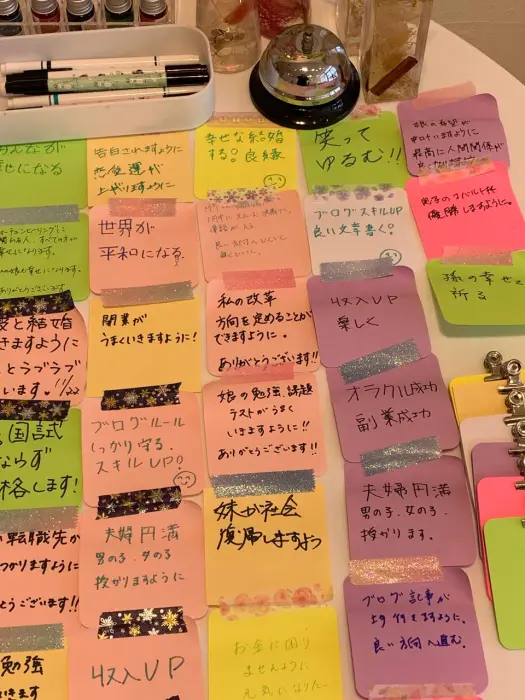 みんなが
幸せになる
告白されますように
恋愛運が
上がりますように
幸せな結婚
する。良縁
笑って
ゆるむ!!
最高に人間関係が
世界が
平和になる
ブログスキルUP
良い文章書く。
優勝しますように。
孫の幸せを
祈る
と結婚
きますように
とラブラブ
います。!!/22
開業が
うまくいきますように!
私の改革
方向を定めることが
できますように。
ありがとうございます!!
収入UP
楽しく
国試
ならず
格します!
ブログルール
しっかり守る。
スキルUP!
娘の勉強、課題
テストがうまく
いきますように!!
ありがとうございます!!
オラクル成功
副業成功
転職先が
つかりますように
とうございます!!
夫婦円満
男の子、女の子
授かりますように
妹が社会
復帰しますよう
夫婦円満
男の子、女の子、
授かります。
勉強
収入UP
お金に困り
ませんように
元気になりた
ブログ記事が
ますように。
良い方向へ進む。